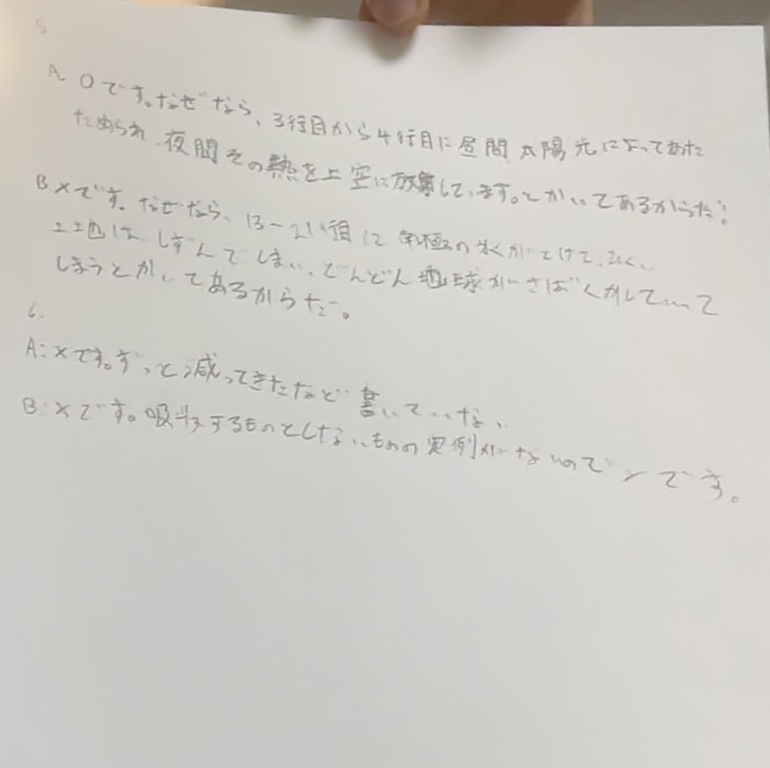 5
A. ○です。なぜなら、3行目から4行目に昼間 太陽光によってあた
ためられ、夜間その熱を上空に放熱しています。とかいてあるからだ。
B ×です。なぜなら、13-21行目に 南極の氷がとけて、ひくい
土地は、しずんでしまい、どんどん地球がさばくかして…って
しまうとかいてあるからだ。
6.
A:×です。ずっと減ってきたなど書いていない
B:×です。吸収するものとしないものの実例がないので×です。